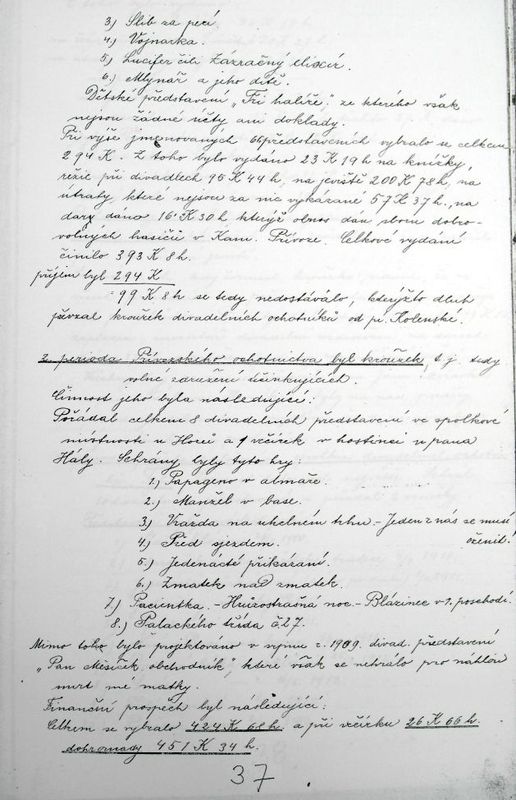 3) Slib za pecí
4) Vojnarka.
5) Lucifer čili Zázračný elixír.
6.) Mlynář a jeho dítě.
Dětské představení „Tři halíře", ze kterého však
nejsou žádné účty ani doklady.
Při výše jmenovaných 6ti představeních vybralo se celkem
294 K. Z toho bylo vydáno 23 K 19 h na knížky,
režie při divadlech 95 K 44 h, na jeviště 200 K 78 h, na
útraty které nejsou za nic vykázané 57 K 37 h, na
dary dáno 16 K 30 h kterýž obnos dán sboru dobro-
volných hasičů v Kam. Přívoze. Celkové vydání
činilo 393 K 8 h.
příjem byl 294 K
99 K 8 h se tedy nedostávalo, kterýžto dluh
převzal kroužek divadelních ochotníků od pí. Kolenské.
2. perioda Přívozského ochotnictva byl kroužek, t. j. tedy
volné sdružení účinkujících.
Činnost jeho byla následující:
Pořádal celkem 8 divadelních představení ve spolkové
místnosti u Horů a 1 věčírek v hostinci u pana
Hály. Sehrány byly tyto hry:
1.) Papageno v almaře.
2.) Manžel v base.
3.) Vražda na uhelném trhu - Jeden z nás se musí
oženit!
4.) Před sjezdem.
5.) Jedenácté přikázaní.
6.) Zmatek nad zmatek.
7.) Pacientka. - Hrůzostrašná noc. - Blázinec v 1. poschodí.
8.) Palackého třída č. 27.
Mimo toho bylo projektováno v srpnu r. 1909. divad. představení
„Pan Měsíček, obchodník", které však se nehrálo pro náhlou
smrt mé matky.
Finanční prospěch byl následující:
Celkem se vybralo 424 K 68 h. a při věčírku 26 K 66 h.
dohromady 451 K 34 h.
37